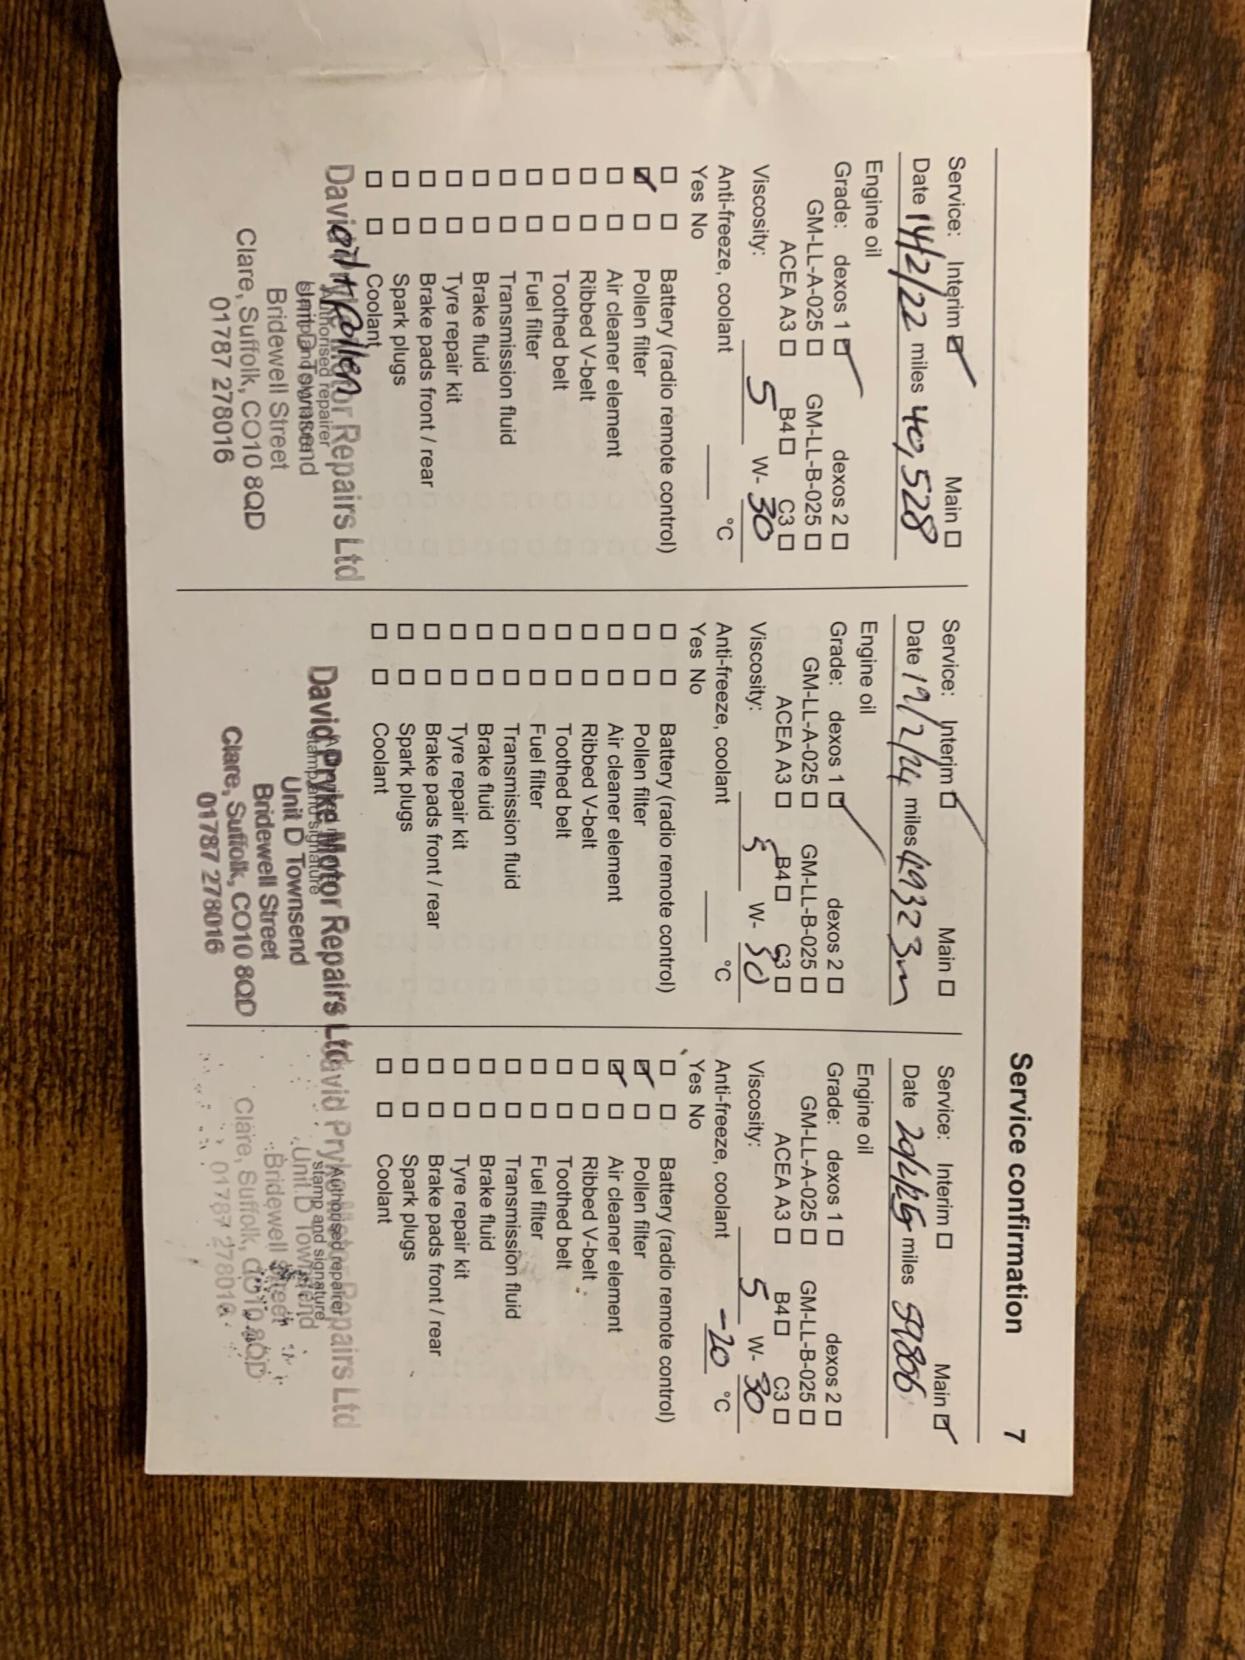 Service confirmation 7
Service: Interim ☑ Main ☐
Date 14/2/22 miles 40,528
Engine oil
Grade: dexos 1 ☑ dexos 2 ☐
GM-LL-A-025 ☐ GM-LL-B-025 ☐
ACEA A3 ☐ B4 ☐ C3 ☐
Viscosity: 5 W- 30
Anti-freeze, coolant °C
Yes No
☐ ☐ Battery (radio remote control)
☑ ☐ Pollen filter
☐ ☐ Air cleaner element
☐ ☐ Ribbed V-belt
☐ ☐ Toothed belt
☐ ☐ Fuel filter
☐ ☐ Transmission fluid
☐ ☐ Brake fluid
☐ ☐ Tyre repair kit
☐ ☐ Brake pads front / rear
☐ ☐ Spark plugs
☐ ☐ Coolant
oil + pollen
David Motor Repairs Ltd
Authorised repairer
Townsend
Bridewell Street
Clare, Suffolk, CO10 8QD
01787 278016
Service: Interim ☑ Main ☐
Date 19/2/24 miles 49323m
Engine oil
Grade: dexos 1 ☑ dexos 2 ☐
GM-LL-A-025 ☐ GM-LL-B-025 ☐
ACEA A3 ☐ B4 ☐ C3 ☐
Viscosity: 5 W- 30
Anti-freeze, coolant °C
Yes No
☐ ☐ Battery (radio remote control)
☐ ☐ Pollen filter
☐ ☐ Air cleaner element
☐ ☐ Ribbed V-belt
☐ ☐ Toothed belt
☐ ☐ Fuel filter
☐ ☐ Transmission fluid
☐ ☐ Brake fluid
☐ ☐ Tyre repair kit
☐ ☐ Brake pads front / rear
☐ ☐ Spark plugs
☐ ☐ Coolant
David Pryke Motor Repairs Ltd
stamp and signature
Unit D Townsend
Bridewell Street
Clare, Suffolk, CO10 8QD
01787 278016
Service: Interim ☐ Main ☑
Date miles 59806
Engine oil
Grade: dexos 1 ☐ dexos 2 ☐
GM-LL-A-025 ☐ GM-LL-B-025 ☐
ACEA A3 ☐ B4 ☐ C3 ☐
Viscosity: 5 W- 30
Anti-freeze, coolant -20 °C
Yes No
☐ ☐ Battery (radio remote control)
☑ ☐ Pollen filter
☑ ☐ Air cleaner element
☐ ☐ Ribbed V-belt
☐ ☐ Toothed belt
☐ ☐ Fuel filter
☐ ☐ Transmission fluid
☐ ☐ Brake fluid
☐ ☐ Tyre repair kit
☐ ☐ Brake pads front / rear
☐ ☐ Spark plugs
☐ ☐ Coolant
David Pryke Motor Repairs Ltd
Authorised repairer
stamp and signature
Unit D Townsend
Bridewell Street
Clare, Suffolk, CO10 8QD
01787 278016